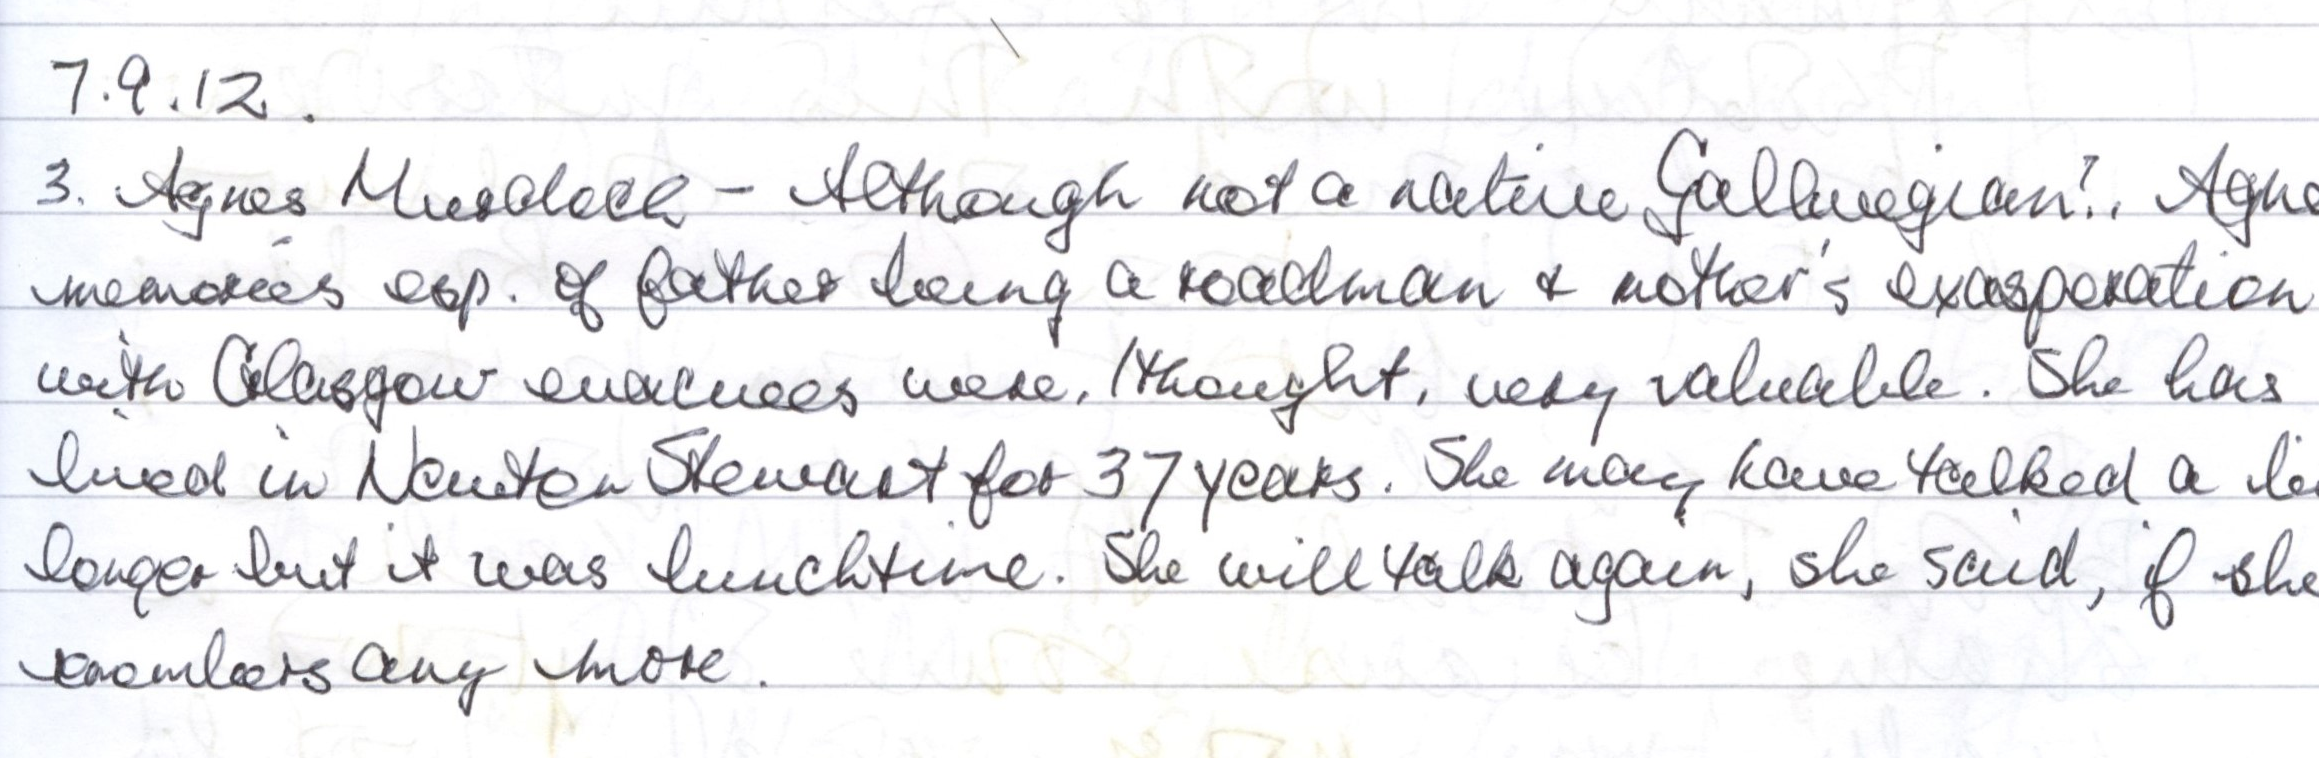 7.9.12.
3. Agnes Murdoch - Although not a native Gallwegian!, Agne
memories esp. of father being a roadman & mother's exasperation
with Glasgow evacuees were, I thought, very valuable. She has
lived in Newton Stewart for 37 years. She may have talked a li
longer but it was lunchtime. She will talk again, she said, if she
remembers any more.